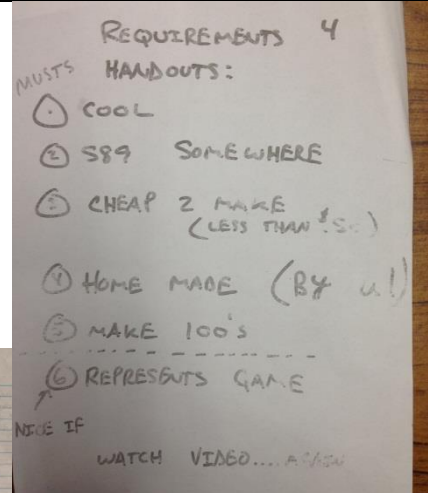 REQUIREMENTS 4
HANDOUTS:
MUSTS
1 COOL
2 589 SOMEWHERE
3 CHEAP 2 MAKE
(LESS THAN $.50)
4 HOME MADE (BY U!)
5 MAKE 100's
6 REPRESENTS GAME
NICE IF
WATCH VIDEO.... AGAIN